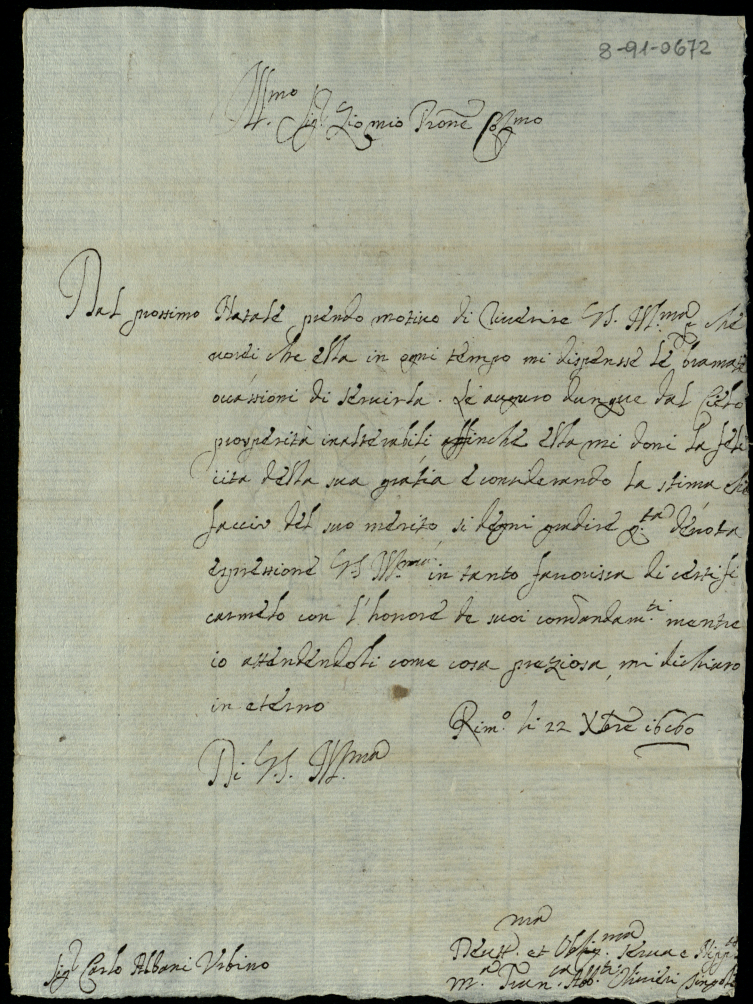 8-91-0672
Ill.mo Sig.r Zio mio Prone Col.mo
Dal prossimo Natale prendo motivo di riverire V.S. Ill.ma, che
vorei che ella in ogni tempo mi dispensse le bramate
ocassioni di servirla. Le auguro dunque dal Cielo
prosperità inalterabili affinche ella mi doni la feli
cita della sua grazia e considerando la stima che
faccio del suo merito, si degni gradire q.ta devota
espressione V.S. Ill.ma in tanto favorisca di certifi
carmelo con l'honore de suoi comandam.ti mentre
io attendendoli come cosa preziosa, mi dichiaro
in eterno
Rim.o li 22 Xbre 1660
Di V.S. Ill.ma
Devt.ma et Obblig.ma Serva e Nipp.te
Sig.r Carlo Albani Urbino
M.a Fran.ca Alb.ti Olivieri